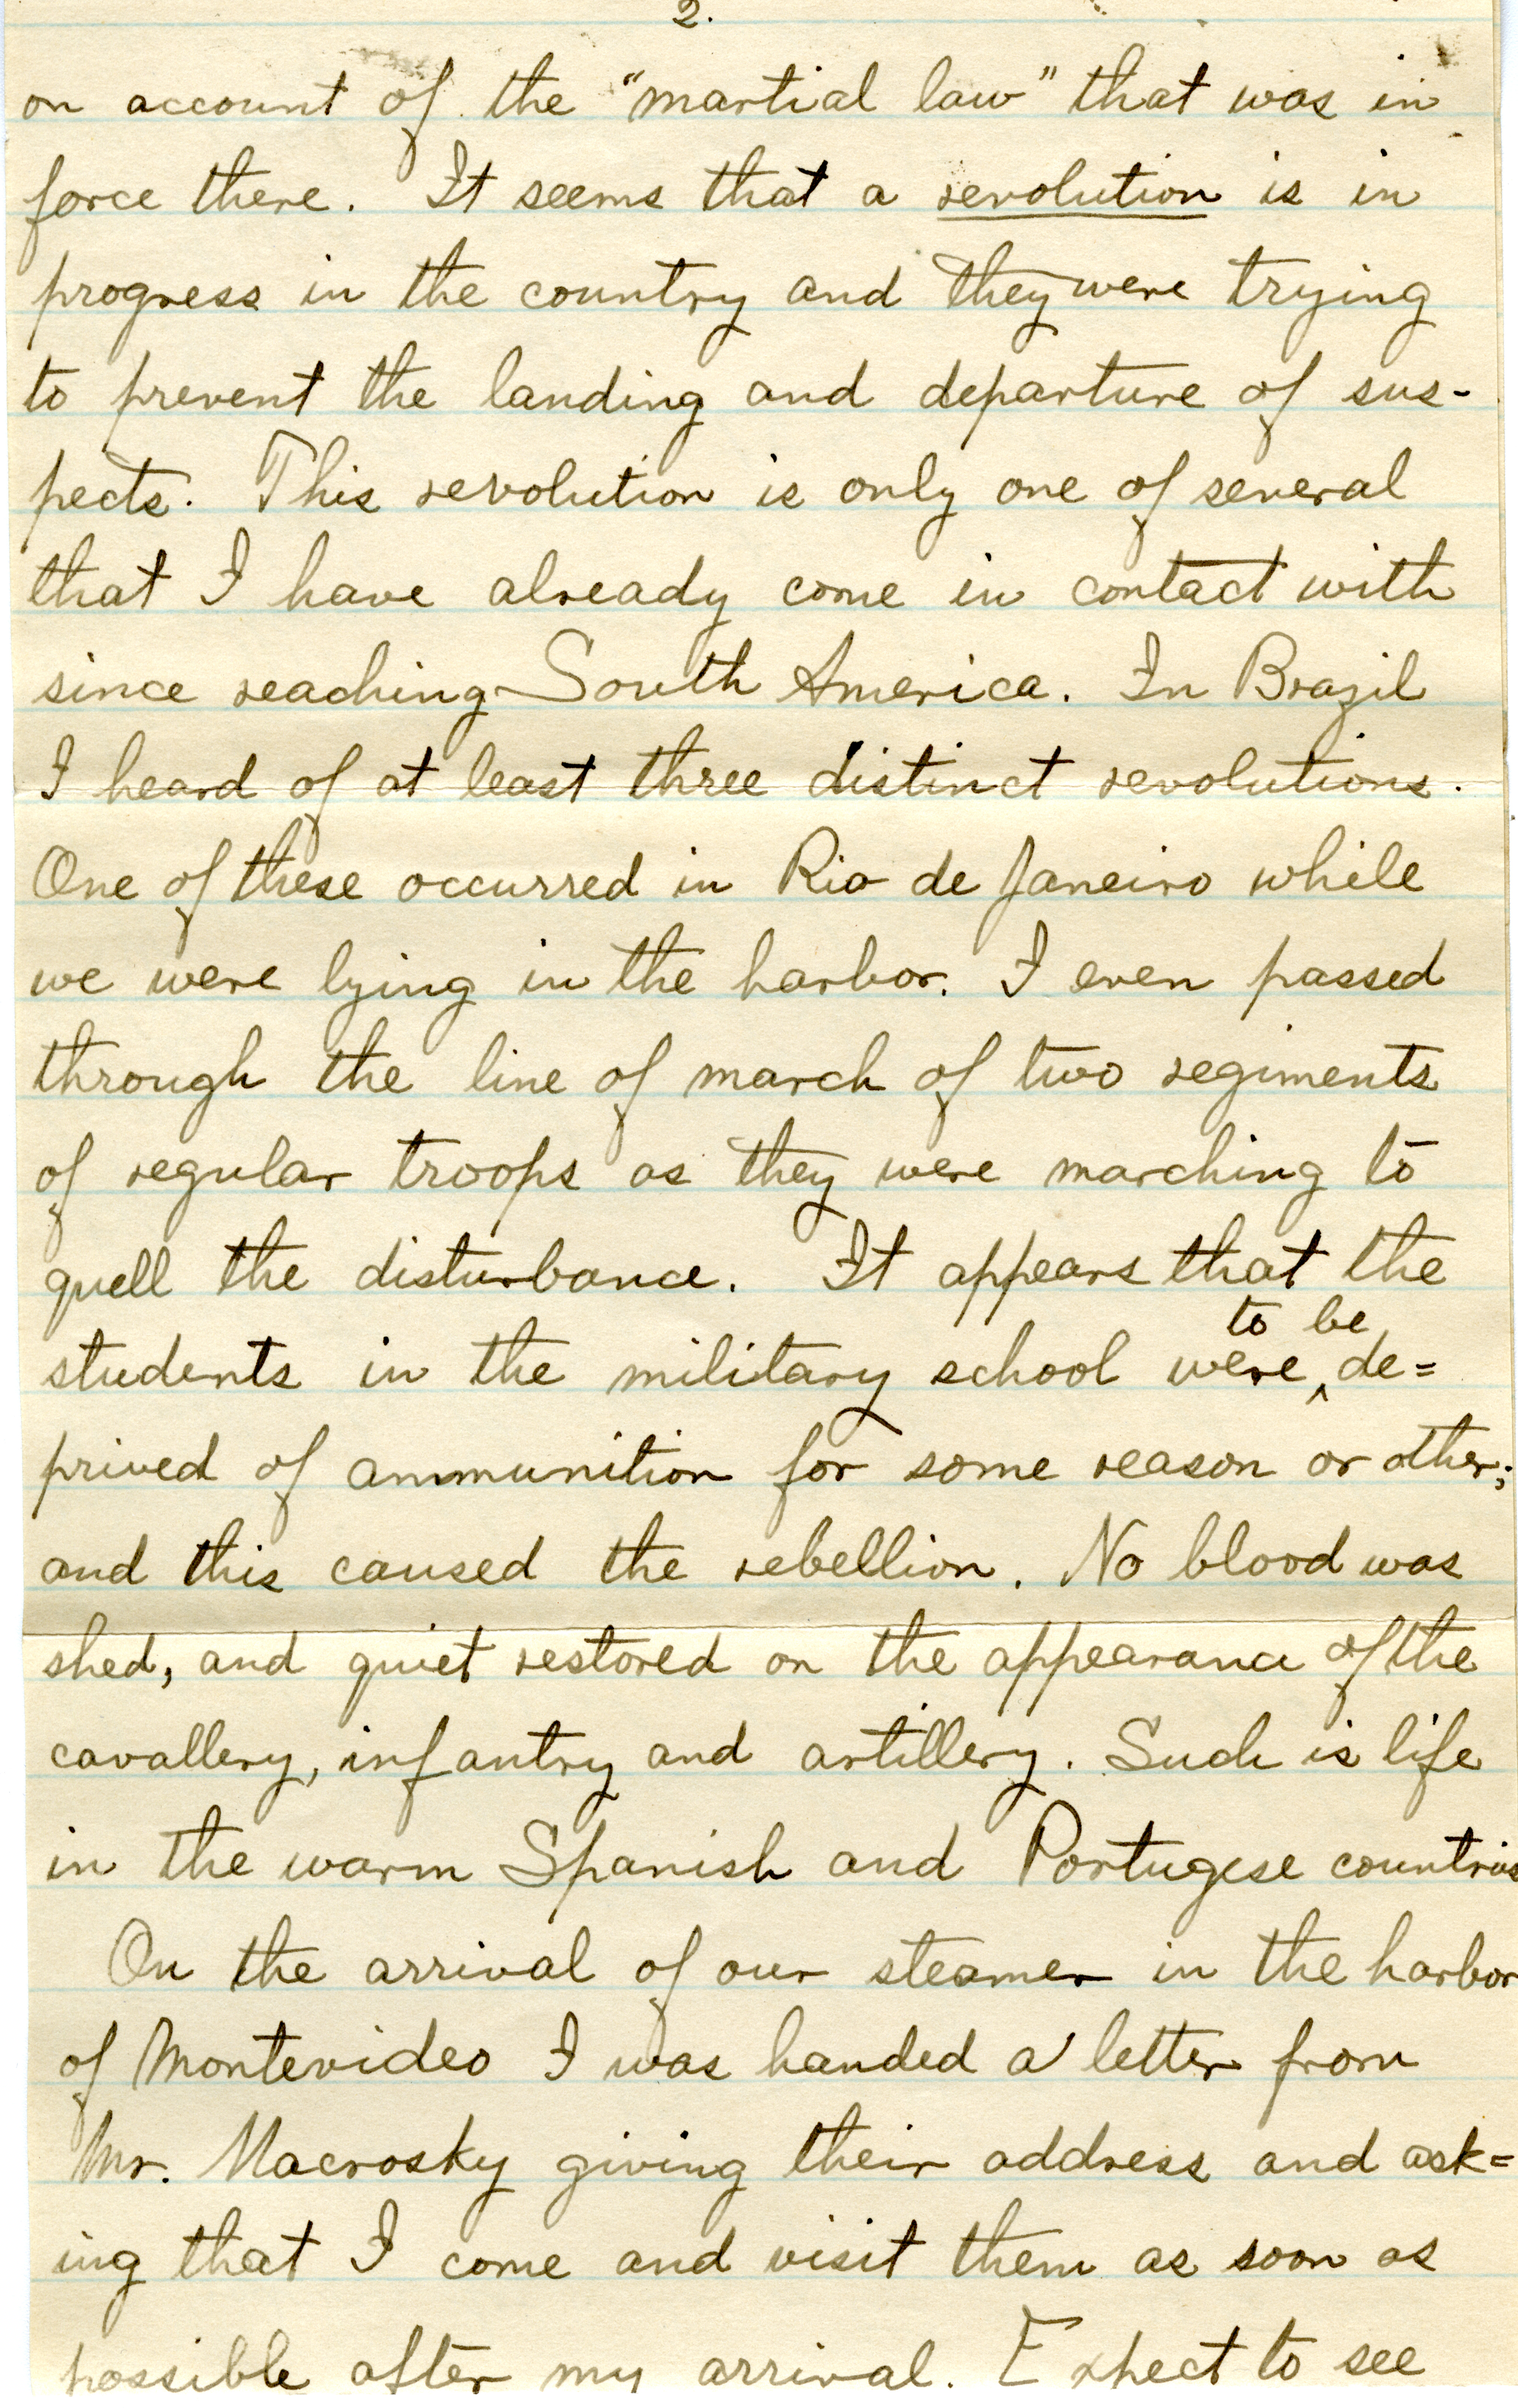 2.
on account of the "martial law" that was in
force there. It seems that a revolution is in
progress in the country and they were trying
to prevent the landing and departure of sus-
pects. This revolution is only one of several
that I have already come in contact with
since reaching South America. In Brazil
I heard of at least three distinct revolutions.
One of these occurred in Rio de Janeiro while
we were lying in the harbor. I even passed
through the line of march of two regiments
of regular troops as they were marching to
quell the disturbance. It appears that the
to be
students in the military school were ^ de=
prived of ammunition for some reason or other;
and this caused the rebellion. No blood was
shed, and quiet restored on the appearance of the
cavallery, infantry and artillery. Such is life
in the warm Spanish and Portugese countries
On the arrival of our steamer in the harbor
of Montevideo I was handed a letter from
Mr. Macrosky giving their address and ask=
ing that I come and visit them as soon as
possible after my arrival. Expect to see